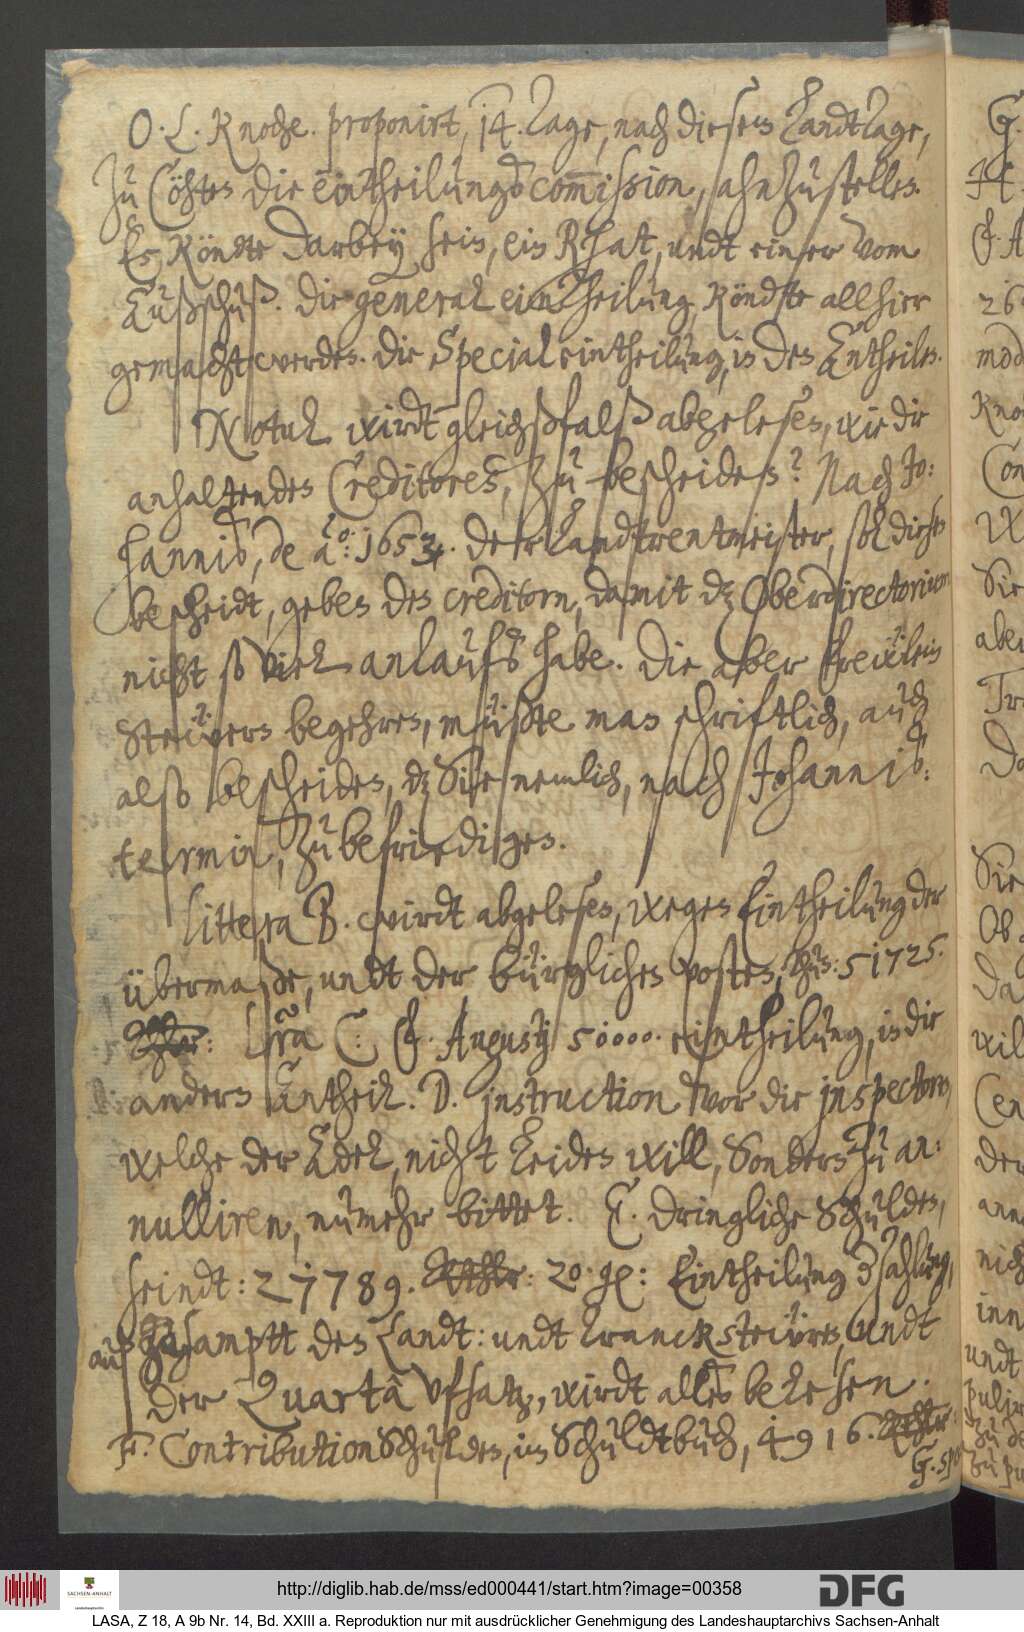 O. L. Knoche. proponirt, 14. tage, nach diesem Landtage,
zu Cöhten die eintheilungs com̅ission, ahnzustellen.
Es köndte darbey sein, ein Rhat, undt einer vom
Außschuß. die general eintheilung köndte allhier
gemacht werden. die Special eintheilung, in den Antheilen.
Notul wirdt gleichsfalß abgelesen, wie die
anhaltenden Creditores, zu bescheiden? Nach Jo:
hannis, de ao: 1654. der Landtrentmeister, soll diesen
bescheidt, geben den creditorn, damit dz Oberdirectorium
nicht so viel anlauffs habe. die aber Freüllein
Steüern begehren, müßte man schriftlich, auch
also bescheiden, dz Sie nemlich, nach Johannis:
termin, zu befriedigen.
Littera B. wirdt abgelesen, wegen Eintheilung der
übermaße, undt der bürglichen posten, 51725.
Lra C: F. Augustj 50000. eintheilung, in die
andern Antheil. D. jnstruction vor die jnspectores,
welche der Adel, nicht leiden will, Sondern zu an:
nulliren, numehr bittet. E. dringliche Schulden,
seindt: 27789. 20. gl: Eintheilung d zahlung,
auß samptt den Landt: undt Tranksteüren, undt
der Quarta Uffsatz, wirdt alles belesen.
F. Contribution Schulden, im Schuldtbuch, 4916.
G. spe
G.
26
mod
Kno
Con
Sie
aber
Sie
Ob
der
nich
inn
undt
http://diglib.hab.de/mss/ed000441/start.htm?image=00358
DFG
SACHSEN-ANHALT
LASA, Z 18, A 9b Nr. 14, Bd. XXIII a. Reproduktion nur mit ausdrücklicher Genehmigung des Landeshauptarchivs Sachsen-Anhalt